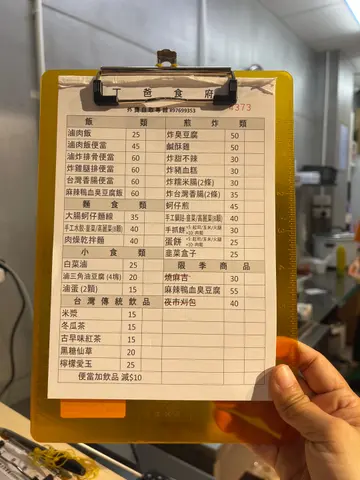 丁爸食府
外賣自取專線897699353
4373
飯 類
滷肉飯 25
滷肉飯便當 45
滷炸排骨便當 60
炸雞腿排便當 60
台灣香腸便當 60
麻辣鴨血臭豆腐飯 60
麵食類
大腸蚵仔麵線 35
手工水餃-韭菜/高麗菜(8顆) 40
肉燥乾拌麵 40
小食類
白菜滷 25
滷三角油豆腐 (4塊) 20
滷蛋 (2顆) 15
台灣傳統飲品
米漿 15
冬瓜茶 15
古早味紅茶 15
黑糖仙草 20
檸檬愛玉 25
便當加飲品 減$10
煎炸類
炸臭豆腐 50
鹹酥雞 50
炸甜不辣 30
炸豬血糕 30
炸糯米腸(2條) 30
台灣香腸(2條) 35
蚵仔煎 50
手工鍋貼-韭菜/高麗菜(8顆) 40
手抓餅 30
蛋餅 25
韭菜盒子 25
限季商品
燒麻吉 30
麻辣鴨血臭豆腐 55
夜市刈包 40